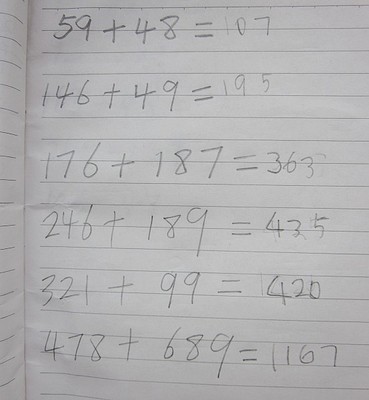 59 + 48 = 107
146 + 49 = 195
176 + 187 = 363
246 + 189 = 435
321 + 99 = 420
478 + 689 = 1167